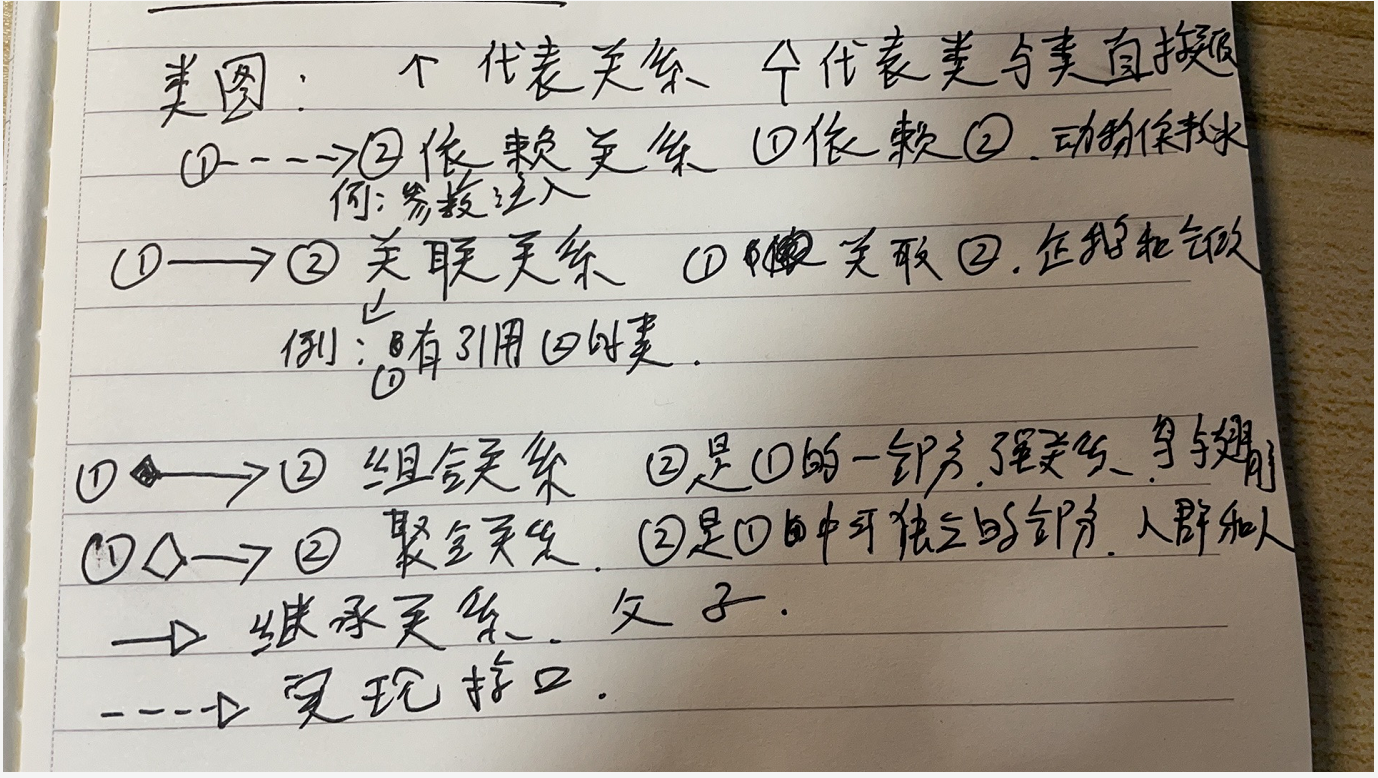 类图: ↑ 代表关系 ⇧代表类与类直接
①---->②依赖关系 ①依赖②. 动物依赖水
例: 参数注入
①→② 关联关系 ① 关联②. 企鹅和气候
例: ①有引用②的类.
①◆→② 组合关系 ②是①的一部分. 强关系. 鸟与翅膀
①◇→② 聚合关系. ②是①中可独立的部分. 人群和人
—▷ 继承关系. 父子.
----▷ 实现接口.